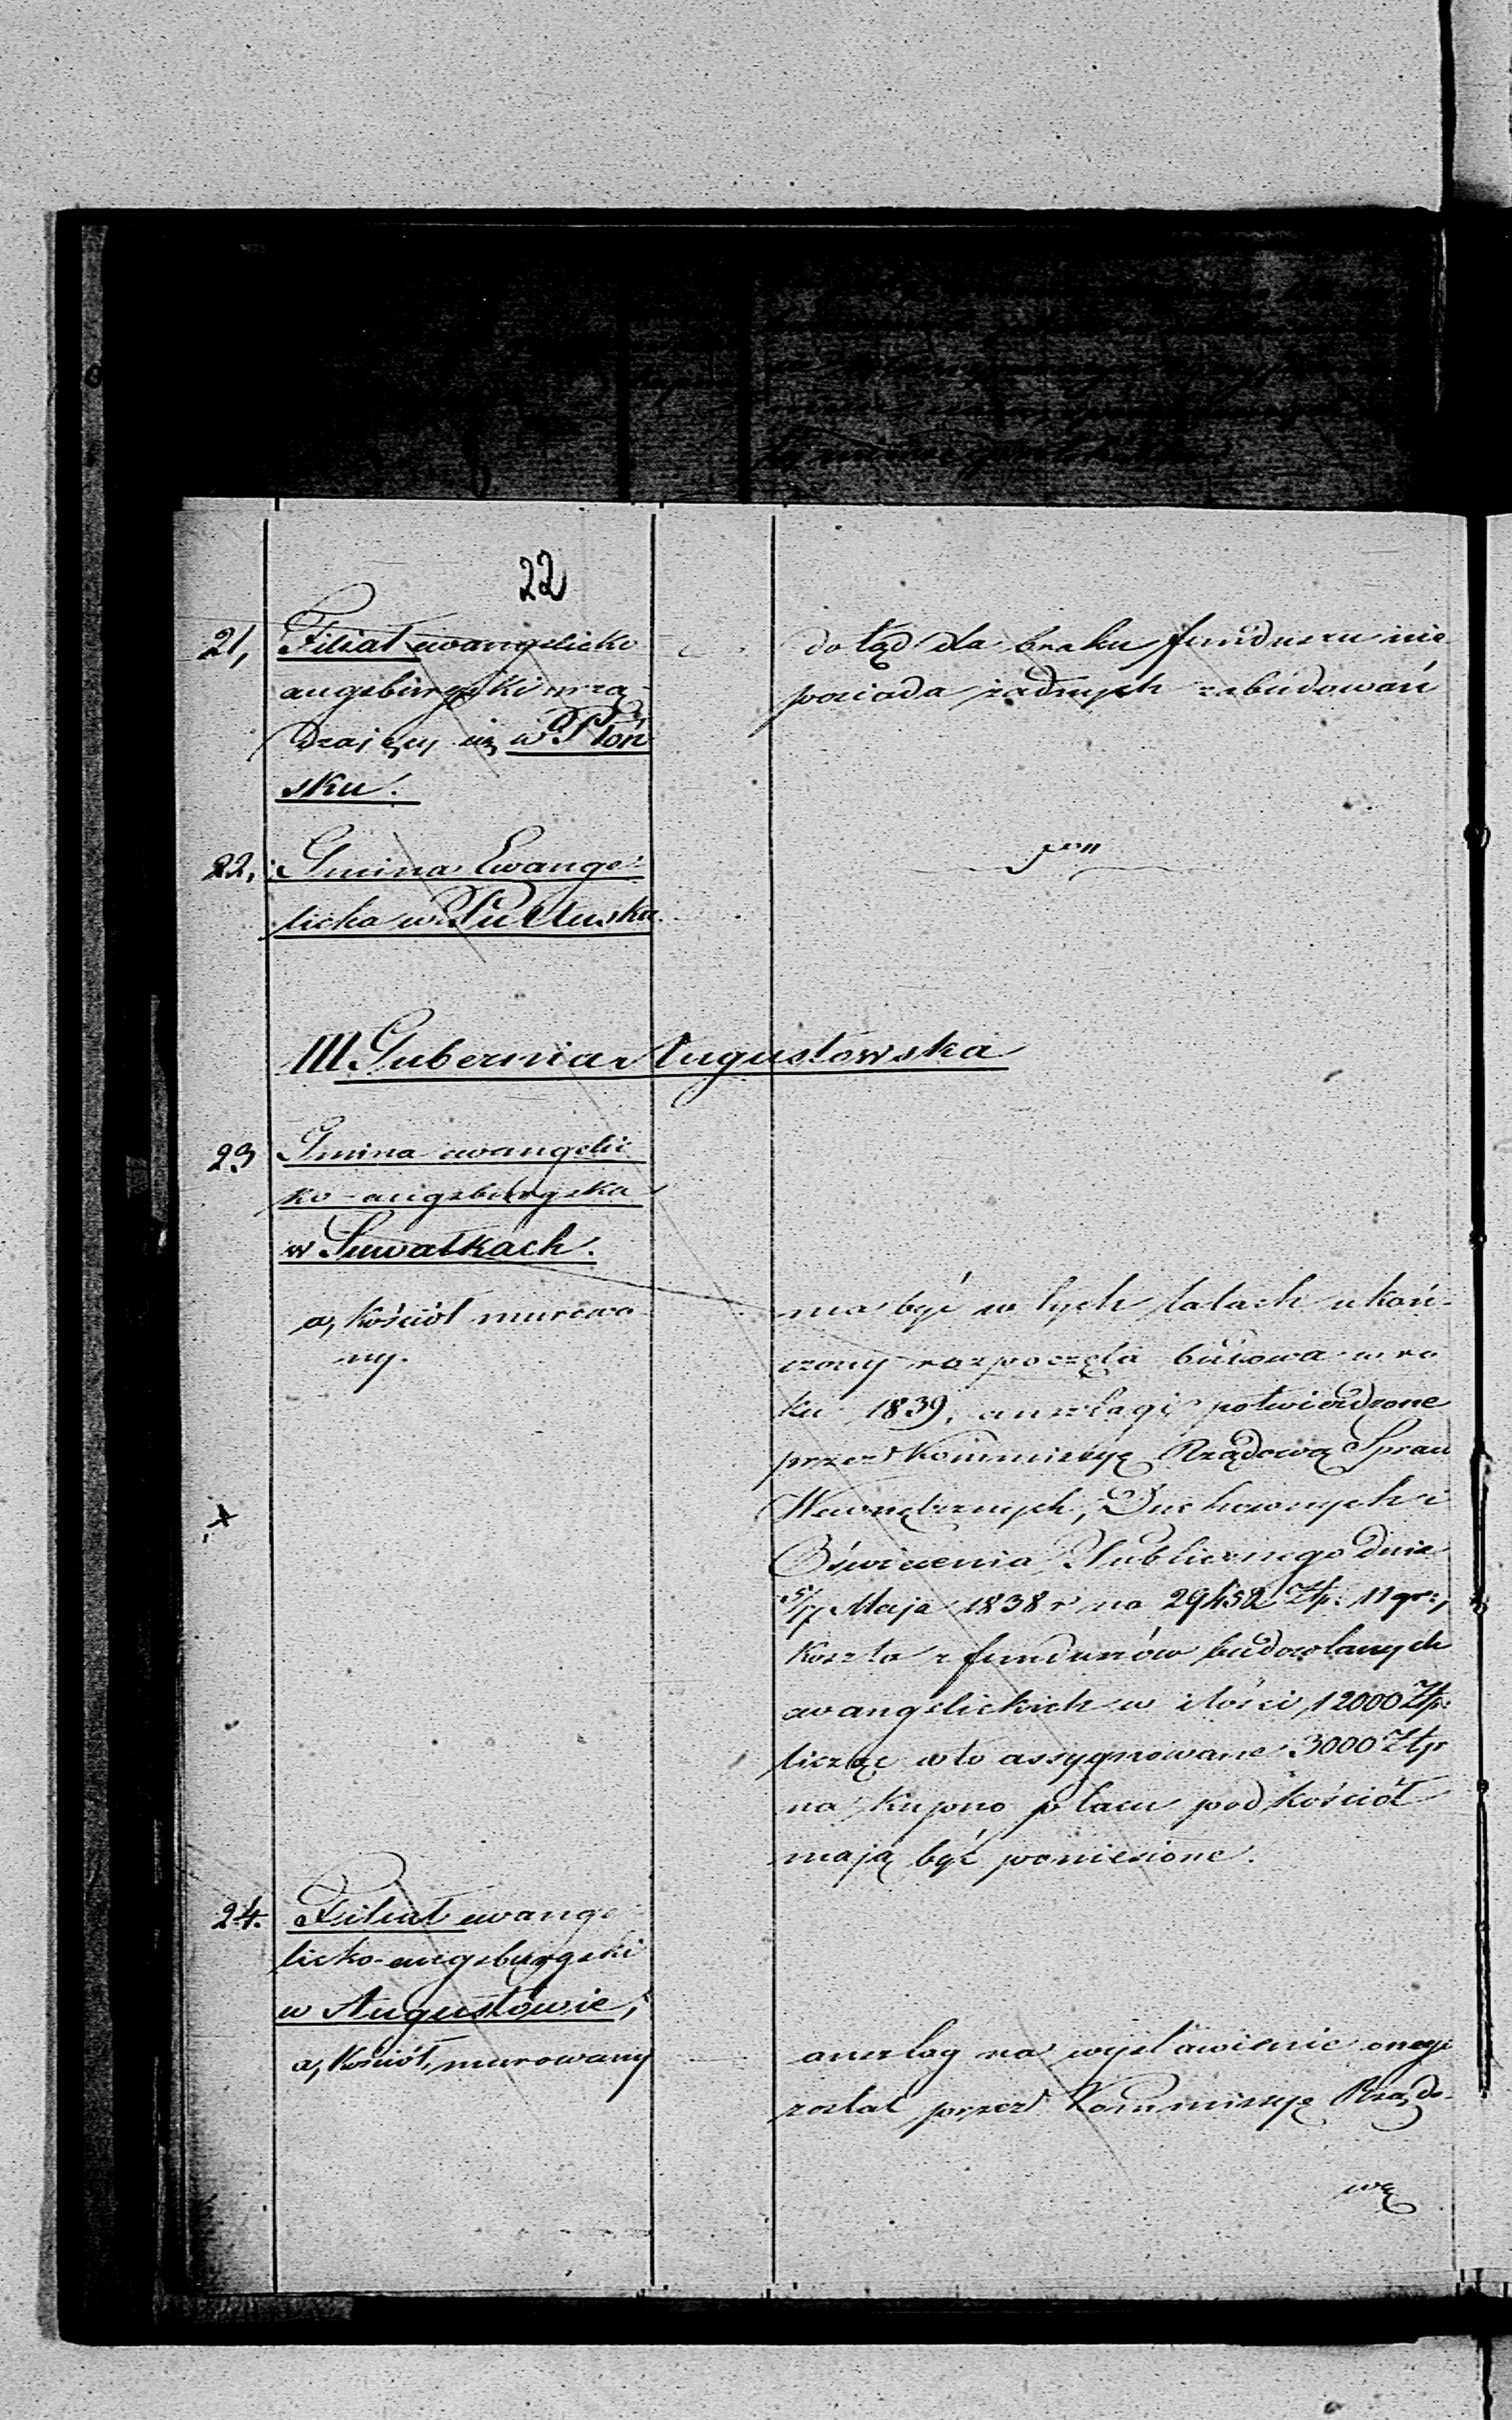 22
21, Filiał ewangelicko dotąd dla braku funduszu nie
augsburgski urzą- posiada żadnych zabudowań
dzający się w Płoń
sku.
22, Gmina Ewange-
licka w Pułtusku
III Gubernia Augustowska
23 Gmina ewangelic
ko-augsburgska
w Suwałkach.
a, kościół murowa- ma być w tych latach ukoń-
ny. czony rozpoczęta budowa w ro
ku 1839, anszlagi potwierdzone
przez Kommissyę Rządową Spraw
x Wewnętrznych, Duchownych i
Oświecenia Publicznego dnia
5/17 Maja 1838 r na 29452 Złp: 11 gr:,
koszta z funduszów budowlanych
ewangelickich w ilości 12000 Złp:
licząc w to assygnowane 3000 Złp
na kupno placu pod kościół
mają być poniesione.
24. Filiał ewange
licko-augsburgski
w Augustowie,
a, Kościół murowany anszlag na wystawienie onego
został przez Kommissyę Rządo-
wą